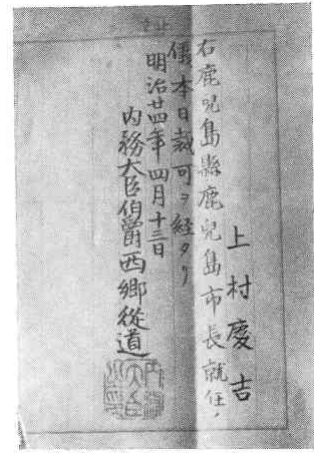 上村慶吉
右鹿兒島縣鹿兒島市長就任ノ
儀本日裁可ヲ経タリ
明治廿四年四月十三日
内務大臣伯爵西郷従道
内務大臣之印